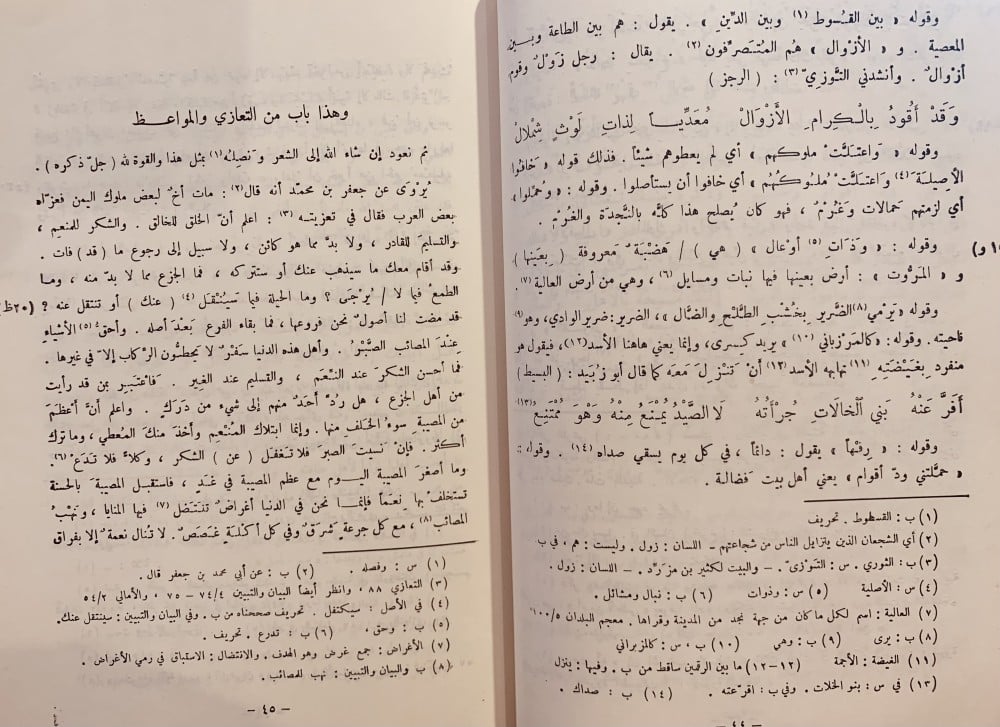 وقوله « بين القسُوط (١) وبين الدِّينِ » . يقول : هم بين الطاعة وبين
المعصية . و « الأزْوال » هُم المُتَصرِّفون (٢) . يقال : رجل زَوْلٌ وقوم
أزْوالٌ . وأنشدني التَّوَّزي (٣) : ( الرجز )
وَقَدْ أَقُودُ بِالْكِرامِ الأَزْوَال مُعَدِّياً لِذاتِ لَوْثٍ شِمْلال
وقوله « وَاعتَلَّتْ ملوكهم » أي لم يعطوهم شيئاً . فذلك قوله « خَافوا
الأصِيلةَ (٤) وَاعتَلَّتْ مُلُوكُهُم » أي خافوا أن يستأصلوا . وقوله : « وحُمِّلوا »
أي لزمتهم حَمالات وَغُرْمٌ ، فهو كان يُصلح هذا كلَّه بالنَّجدَة والغُرْمِ .
وقوله : « وَذَاتِ (٥) أوْعال » ( هي ) / هَضْبَةٌ معروفة ( بِعَينها )
و « المَرُّوت » : أرض بعينها فيها نبات ومسايل (٦) ، وهي من أرض العالية (٧) .
وقوله « يَرْمي (٨) الضَّرير بِخُشْبِ الطَّلْحِ والضَّال » ، الضرير : ضرير الوادي ، وهو (٩)
ناحيته . وقوله : « كالمَرْزُباني (١٠) » يريد كِسرى ، وإنما يعني هاهنا الأسد (١٢) ، فيقول هو
منفرد بِغَيْضَتِهِ (١١) تهابه الأسد (١٢) أنْ تَنْزِلَ مَعَه كما قال أبو زُبَيد : ( البسيط )
أَقَرَّ عَنْهُ بَنِي الْخالاتِ جُرْأَتُهُ لَا الصَّيْدُ يُمْنَعُ مِنْهُ وَهْوَ مُمْتَنِعُ (١٣)
وقوله : « رِفْهاً » يقول : دائماً ، في كل يوم يسقي صداه (١٤) . وقوله :
« حمَّلتني ودّ أقوام » يعني أهل بيت فَضالة .
(١) ب : القسطوط . تحريف
(٢) أي الشجعان الذين يتزايل الناس من شجاعتهم – اللسان : زول . وليست : هم ، في ب
(٣) ب : الثوري . س : التنوزى . – والبيت لكثير بن مزرّد . – اللسان : زول .
(٤) س : الأصلية (٥) س : وذوات (٦) ب : نبال ومشائل .
(٧) العالية : اسم لكل ما كان من جهة نجد من المدينة وقراها . معجم البلدان ١٠٠/٥
(٨) ب : يرى (٩) ب : وهي (١٠) ب ، س : كالمزبراني
(١١) الغيضة : الأجمة (١٢–١٢) ما بين الرقمين ساقط من ب . وفيها : ينزل
(١٣) في س : بنو الخلات . وفي ب : اقرّ عته . (١٤) ب : صداك .
– ٤٤ –
وهذا باب من التعازي والمواعظ
ثم نعود إن شاء الله إلى الشعر وَنَصِلُهُ (١) بمثل هذا والقوة لله ( جلّ ذكره ) .
يُرْوَى عن جعفر بن محمّد أنه قال (٢) : مات أخٌ لبعض ملوك اليمن فعزّاه
بعض العرب فقال في تعزيته (٣) : اعلم أنّ الخلق للخالق . والشكر للمنعِم ،
والتسليمَ للقادر ، ولا بدَّ مما هو كائن ، ولا سبيل إلى رجوع ما ( قد ) فات .
وقد أقام معك ما سيذهب عنك أو ستتركه ، فما الجزع مما لا بدّ منه ، وما
الطمعُ فيما لا / يُرْجَى ؟ وما الحيلة فيما سَيُنْتَقَل (٤) ( عنك ) أو تنتقل عنه ؟ (٢٠ظ)
قد مضت لنا أصولٌ نحن فروعها ، فما بقاء الفرع بَعْدَ أصله . وأحقُّ (٥) الأشياءِ
عِندَ المصائب الصَّبْرُ . وأهل هذه الدنيا سَفْرٌ لا يَحطُّون الرِّكاب إلا في غيرها .
فما أحسن الشكرَ عند النِّعَم ، والتسليم عند الغِيَر . فاعْتَبِر بِمن قد رأيت
من أهل الجزع ، هل رُدَّ أحدٌ منهم إلى شيء من دَرَكٍ . واعلم أنَّ أعْظَمَ
من المصيبةِ سوءُ الخلَفِ منها . وإنما ابتلاك المُنْعِم وأخذ منكَ المُعطي ، وما ترك
أكثر . فإنْ نَسيتَ الصبرَ فلا تَغفَل ( عن ) الشكر ، وكلاًّ فلا تَدَعْ (٦) .
وما أصغرَ المصيبة اليوم مع عظم المصيبة في غَدٍ ، فاستقبل المصيبةَ بالحسنة
تستخلف بها نِعَماً فإنما نحن في الدنيا أغراضٌ تَنْتَضل (٧) فيها المنايا ، ونَهْبٌ
المصائب (٨) ، مع كل جرعةٍ شَرَقٌ وفي كل أَكلَةٍ غَصَصٌ . لا تُنال نعمةٌ إلا بفراق
(١) س : وفصله . (٢) ب : عن أبي محمد بن جعفر قال .
(٣) التعازي ٨٨ ، وانظر أيضاً البيان والتبيين ٧٤/٤ – ٧٥ ، والأمالي ٥٤/٢
(٤) في الأصل : سيكتفل . تحريف صححناه من ب . وفي البيان والتبيين : سينتقل عنك .
(٥) ب : وحق . (٦) ب : تدرع . تحريف .
(٧) الأغراض : جمع غرض وهو الهدف . والانتضال : الاستباق في رمي الأغراض .
(٨) ب والبيان والتبيين : نهب للمصائب .
– ٤٥ –